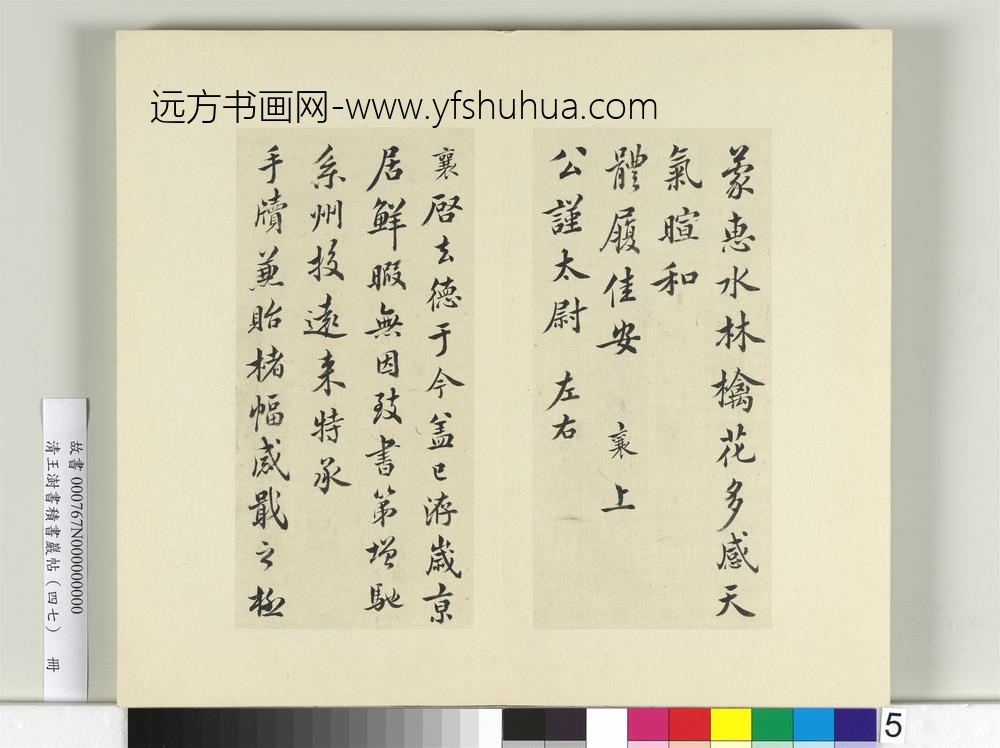 远方书画网-www.yfshuhua.com
蒙惠水林檎花多感天
氣暄和
體履佳安 襄上
公謹太尉 左右
襄啓去德于今盖已洊歲京
居鮮暇無因致書第增馳
系州投遠来特承
手牘兼貽楮幅感戢之極
故書 000767N000000000
清王澍書積書巖帖（四七） 冊
5